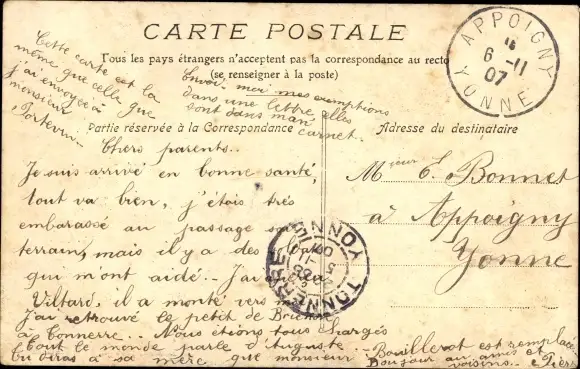 CARTE POSTALE
Tous les pays étrangers n'acceptent pas la correspondance au recto
(se renseigner à la poste)
Cette carte est la
même que celle que
j'ai envoyée à
monsieur
Envoi moi mes exemptions
dans une lettre, elles
sont dans mon
carnet.
Partie réservée à la Correspondance
Adresse du destinataire
APPOIGNY
6 -11
07
YONNE
Chers parents..
Je suis arrivé en bonne santé,
tout va bien, j'étais très
embarassé au passage
terrain, mais il y a des
qui m'ont aidé.- J'ai
Viltard, il a monté vers
J'ai retrouvé le petit de
à Tonnerre.. Nous étions tous chargés
Tout le monde parle d'Auguste..
tu diras à sa mère que monsieur
Bouillerot est remplacé
Bonjour au amis et
voisins..
Msieur E. Bonnet
à Appoigny
Yonne
TONNERRE
YONNE